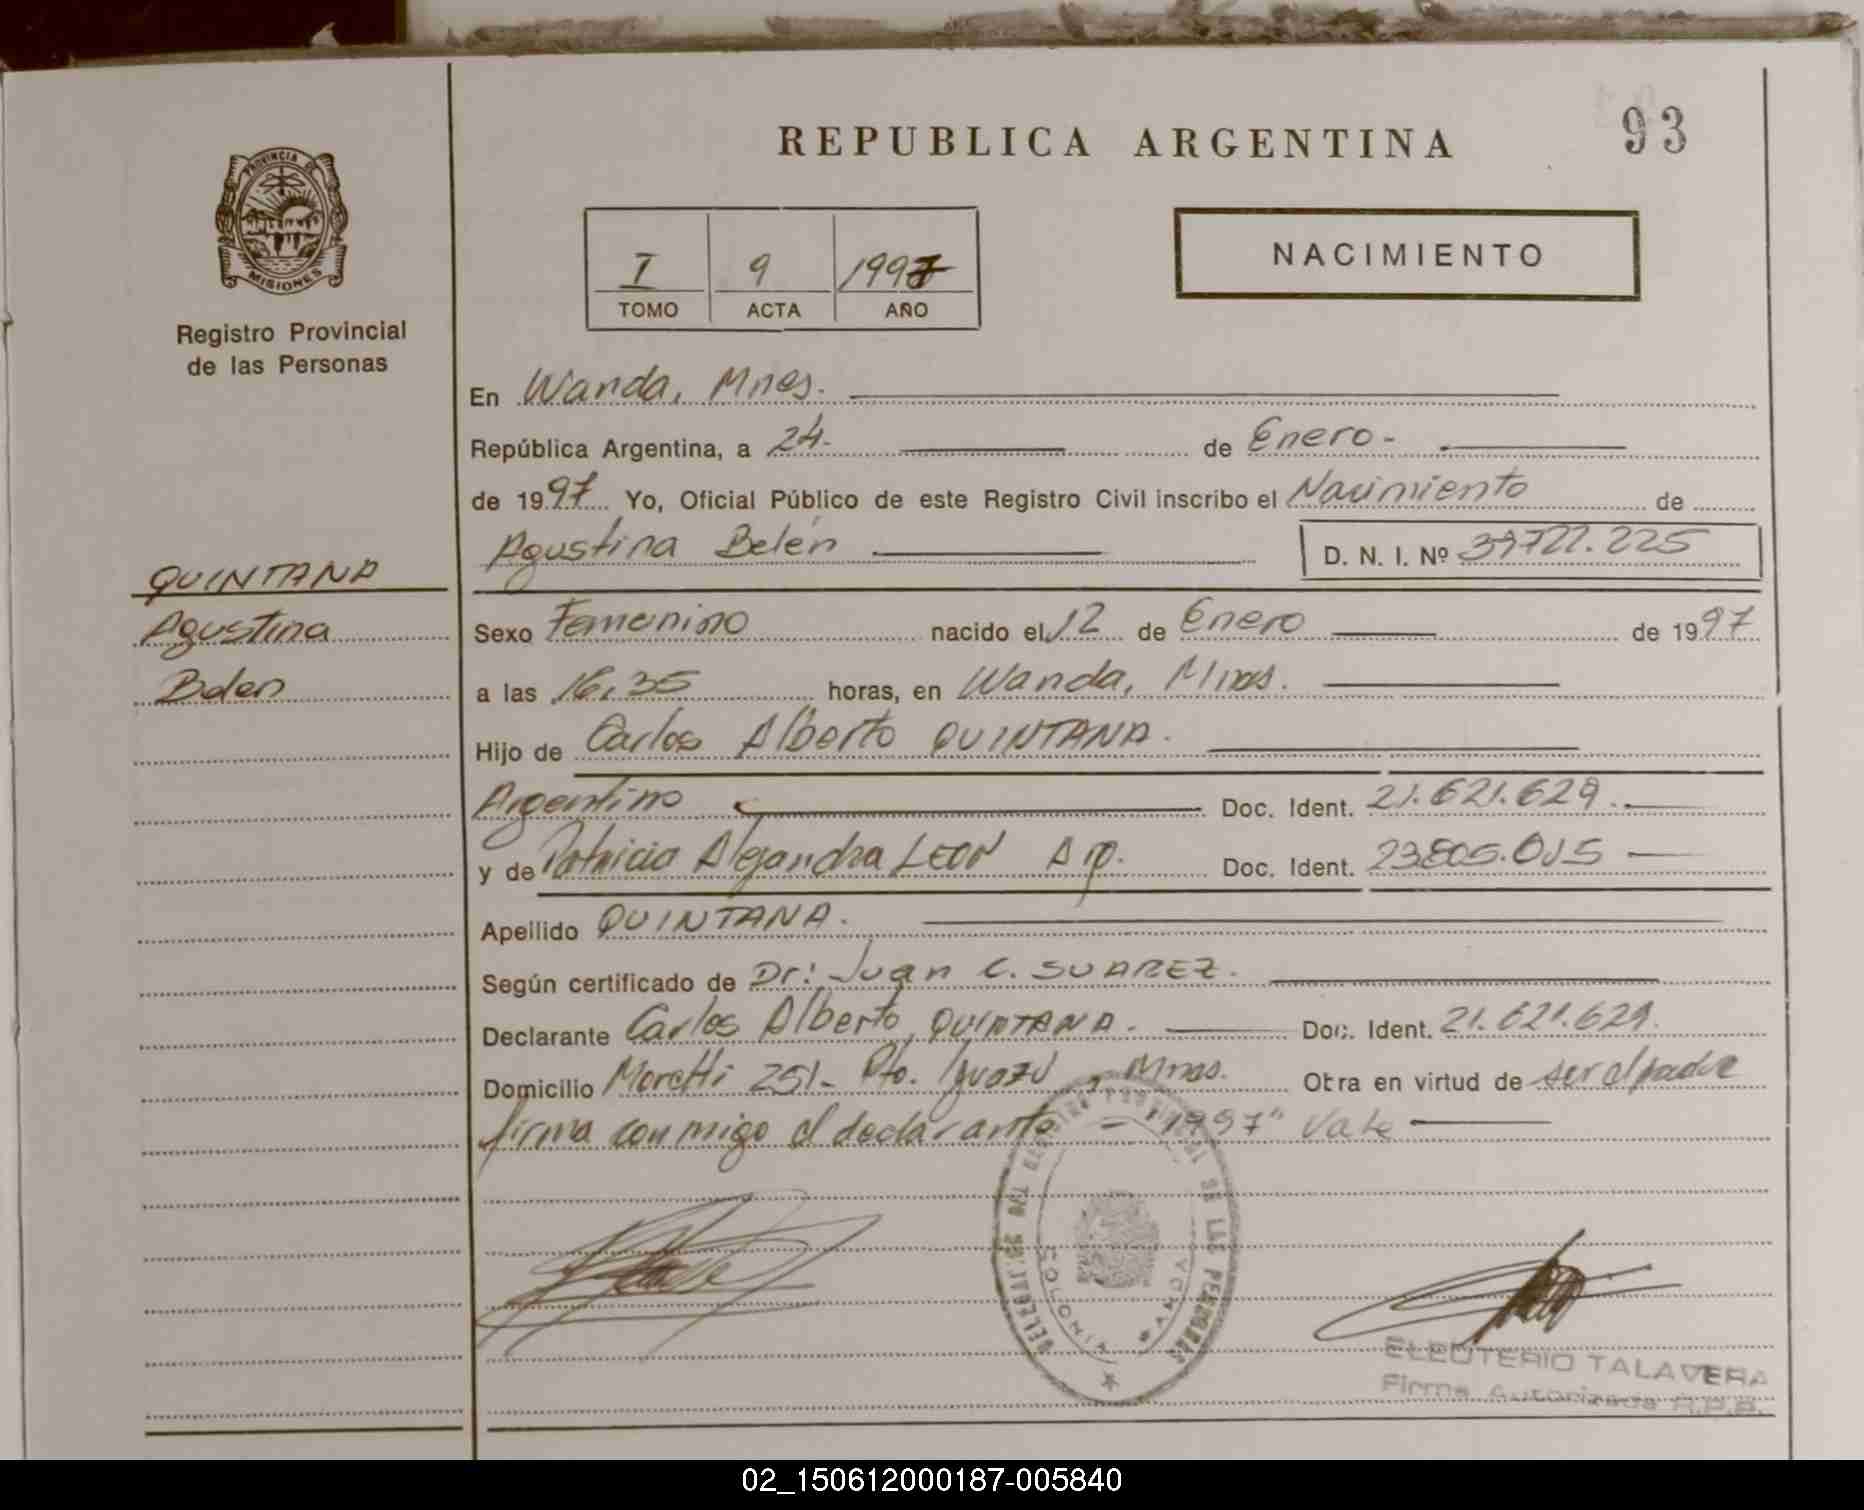 93
REPUBLICA ARGENTINA
PROVINCIA DE
MISIONES
Registro Provincial
de las Personas
NACIMIENTO
I 9 1997
TOMO ACTA AÑO
En Wanda, Mnes.
República Argentina, a 24. de Enero-
de 1997 Yo, Oficial Público de este Registro Civil inscribo el Nacimiento de
Agustina Belén D. N. I. Nº 39722.225
QUINTANA
Agustina
Belen
Sexo Femenino nacido el 12 de Enero de 1997
a las 16,35 horas, en Wanda, Mnes.
Hijo de Carlos Alberto QUINTANA.
Argentino Doc. Ident. 21.621.629.
y de Patricia Alejandra LEON Arg. Doc. Ident. 23.805.015
Apellido QUINTANA.
Según certificado de Dr: Juan C. SUAREZ.
Declarante Carlos Alberto QUINTANA. Doc. Ident. 21.621.629.
Domicilio Moretti 251- Pto. Iguazú, Mnes. Obra en virtud de ser el padre
firma conmigo el declarante - "1997" Vale
COLONIA WANDA
ELEUTERIO TALAVERA
Firma Autorizada R.P.P.
02_150612000187-005840